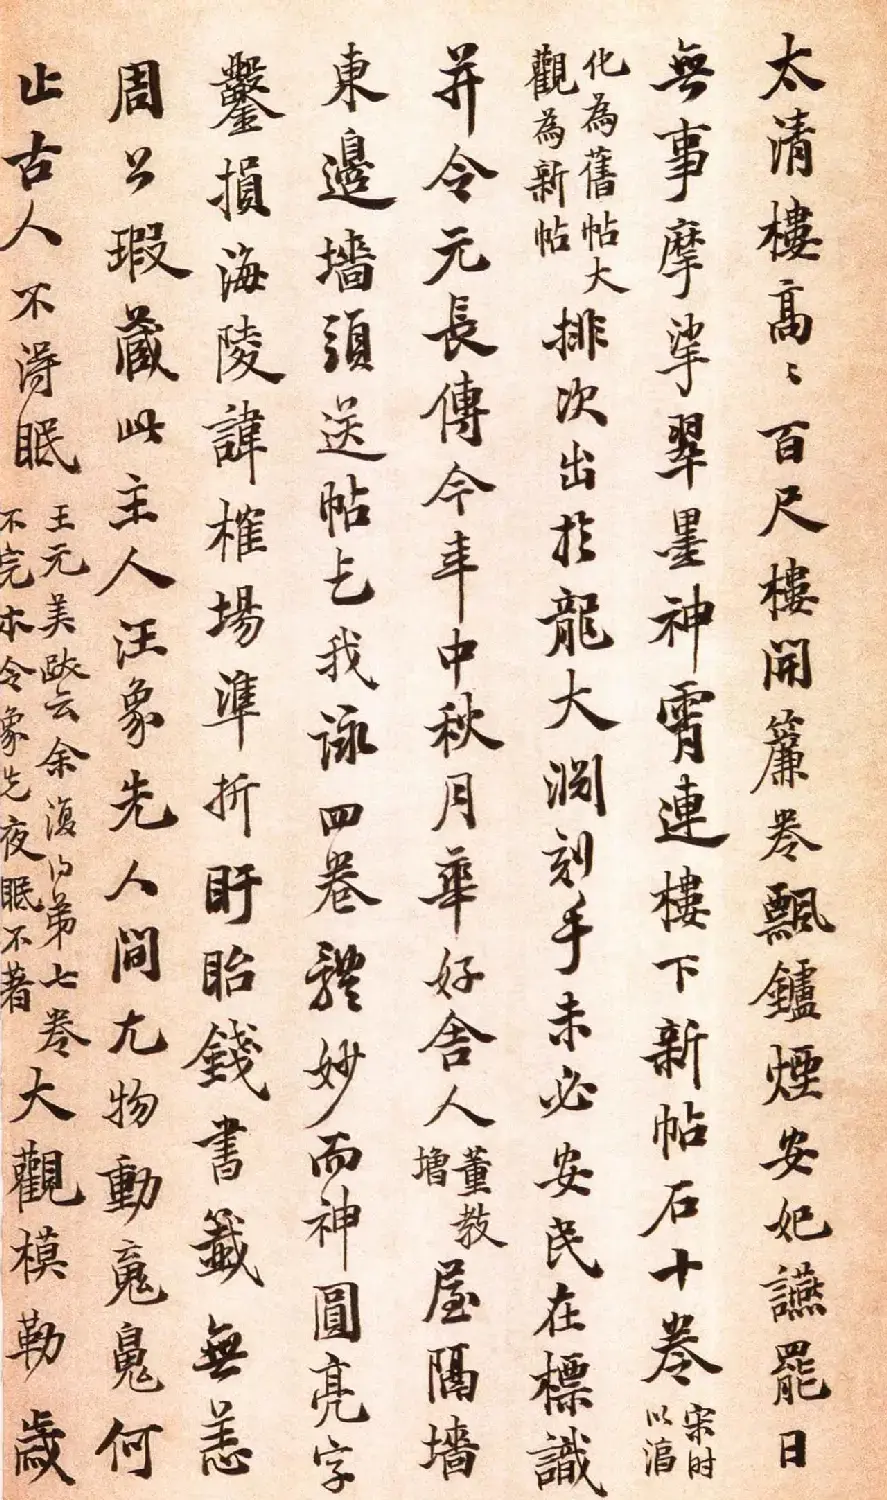 太清樓高〻百尺樓開簾卷飄鑪煙安妃讌罷日
無事摩挲翠墨神霄連樓下新帖石十卷宋时以淳
化為舊帖大觀為新帖排次出於龍大淵刻手未必安民在標識
并令元長傳今年中秋月華好舍人董教增屋隔墻
東邊墻頭送帖乞我詠四卷體妙而神圓亮字
鑿損海陵諱榷場準折盱眙錢書籤無恙
周公瑕藏此主人汪象先人間尤物動鬼何
止古人不得眠王元美跋云余復得第七卷不完本令象先夜眠不著大觀模勒歲